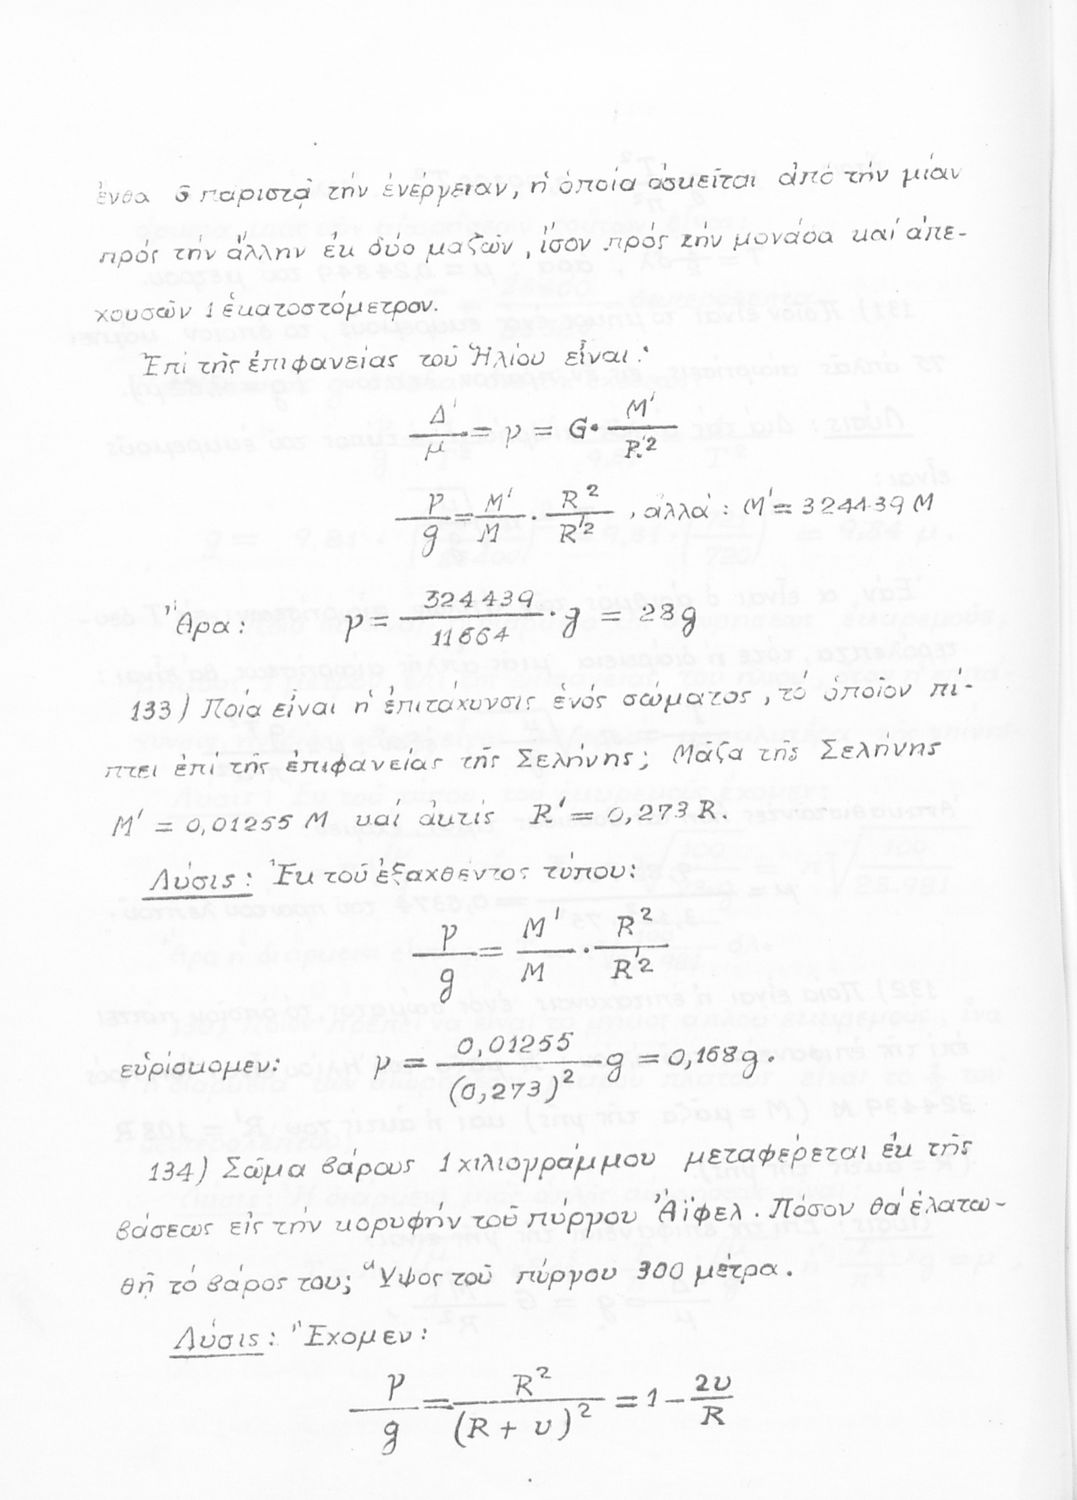 ἔνθα G παριστᾷ τήν ἐνέργειαν, ἡ ὁποία ἀσκεῖται ἀπό τήν μίαν
πρός τήν ἄλλην ἐκ δύο μαζῶν, ἴσον πρός τήν μονάδα καί ἀπε-
χουσῶν 1 ἑκατοστόμετρον.
Ἐπί τῆς ἐπιφανείας τοῦ Ἡλίου εἶναι:
Δ'/μ = γ = G · M'/R'²
γ/g = M'/M · R²/R'², ἀλλά: M' = 324439 M
Ἄρα: γ = 324439/11664 · g = 28g
133) Ποία εἶναι ἡ ἐπιτάχυνσις ἑνός σώματος, τό ὁποῖον πί-
πτει ἐπί τῆς ἐπιφανείας τῆς Σελήνης; Μᾶζα τῆς Σελήνης
M' = 0,01255 M καί ἀκτίς R' = 0,273 R.
Λύσις: Ἐκ τοῦ ἐξαχθέντος τύπου:
γ/g = M'/M · R²/R'²
εὑρίσκομεν: γ = 0,01255/(0,273)² g = 0,168g.
134) Σῶμα βάρους 1 χιλιογράμμου μεταφέρεται ἐκ τῆς
βάσεως εἰς τήν κορυφήν τοῦ πύργου Ἄϊφελ. Πόσον θά ἐλατω-
θῆ τό βάρος του; Ὕψος τοῦ πύργου 300 μέτρα.
Λύσις: Ἔχομεν:
γ/g = R²/(R + υ)² = 1 - 2υ/R